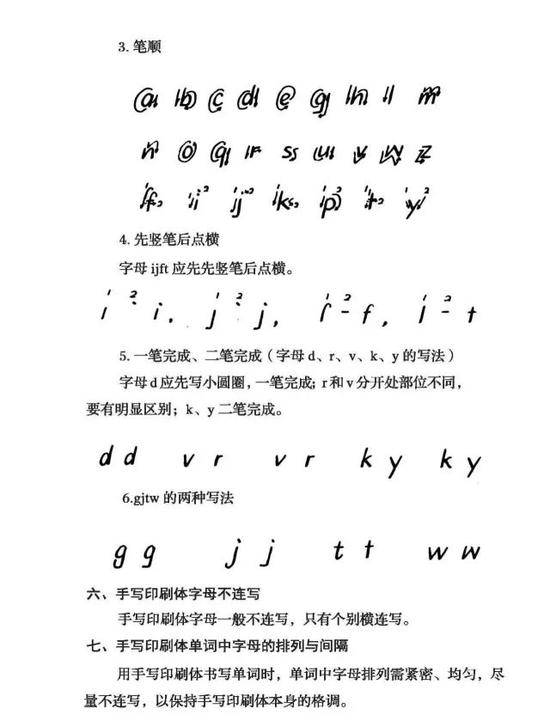 3. 笔顺
a b c d e g h l m
n o q r s u v w z
f i j k p t y
4. 先竖笔后点横
字母 ijft 应先先竖笔后点横。
1 2 i. 1 2 j, 1 2 f, 1 2 t
5. 一笔完成、二笔完成（字母 d、r、v、k、y 的写法）
字母 d 应先写小圆圈，一笔完成；r 和 v 分开处部位不同，
要有明显区别；k、y 二笔完成。
d d v r v r k y k y
6.gjtw 的两种写法
g g j j t t w w
六、手写印刷体字母不连写
手写印刷体字母一般不连写，只有个别横连写。
七、手写印刷体单词中字母的排列与间隔
用手写印刷体书写单词时，单词中字母排列需紧密、均匀，尽
量不连写，以保持手写印刷体本身的格调。